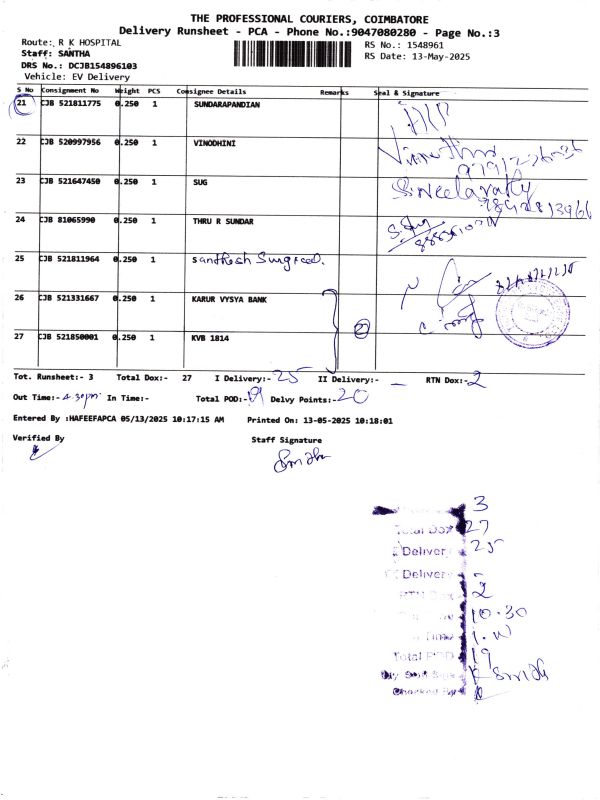 THE PROFESSIONAL COURIERS, COIMBATORE
Delivery Runsheet - PCA - Phone No.:9047080280 - Page No.:3
Route: R K HOSPITAL
Staff: SANTHA
DRS No.: DCJB154896103
Vehicle: EV Delivery
RS No.: 1548961
RS Date: 13-May-2025
S No Consignment No Weight PCS Consignee Details Remarks Seal & Signature
21 CJB 521811775 0.250 1 SUNDARAPANDIAN
22 CJB 520997956 0.250 1 VINODHINI
23 CJB 521647450 0.250 1 SUG
24 CJB 81065990 0.250 1 THRU R SUNDAR
25 CJB 521811964 0.250 1 Santhosh Surgical.
26 CJB 521331667 0.250 1 KARUR VYSYA BANK
27 CJB 521850001 0.250 1 KVB 1814
2
Tot. Runsheet:- 3 Total Dox:- 27 I Delivery:- 25 II Delivery:- - RTN Dox:- 2
Out Time:- 4.30pm In Time:- Total POD:- 19 Delvy Points:- 20
Entered By :HAFEEFAPCA 05/13/2025 10:17:15 AM Printed On: 13-05-2025 10:18:01
Verified By Staff Signature
3
Total Dox 27
I Delivery 25
II Delivery -
RTN Dox 2
10.30
Time
Total POD 19
Checked By